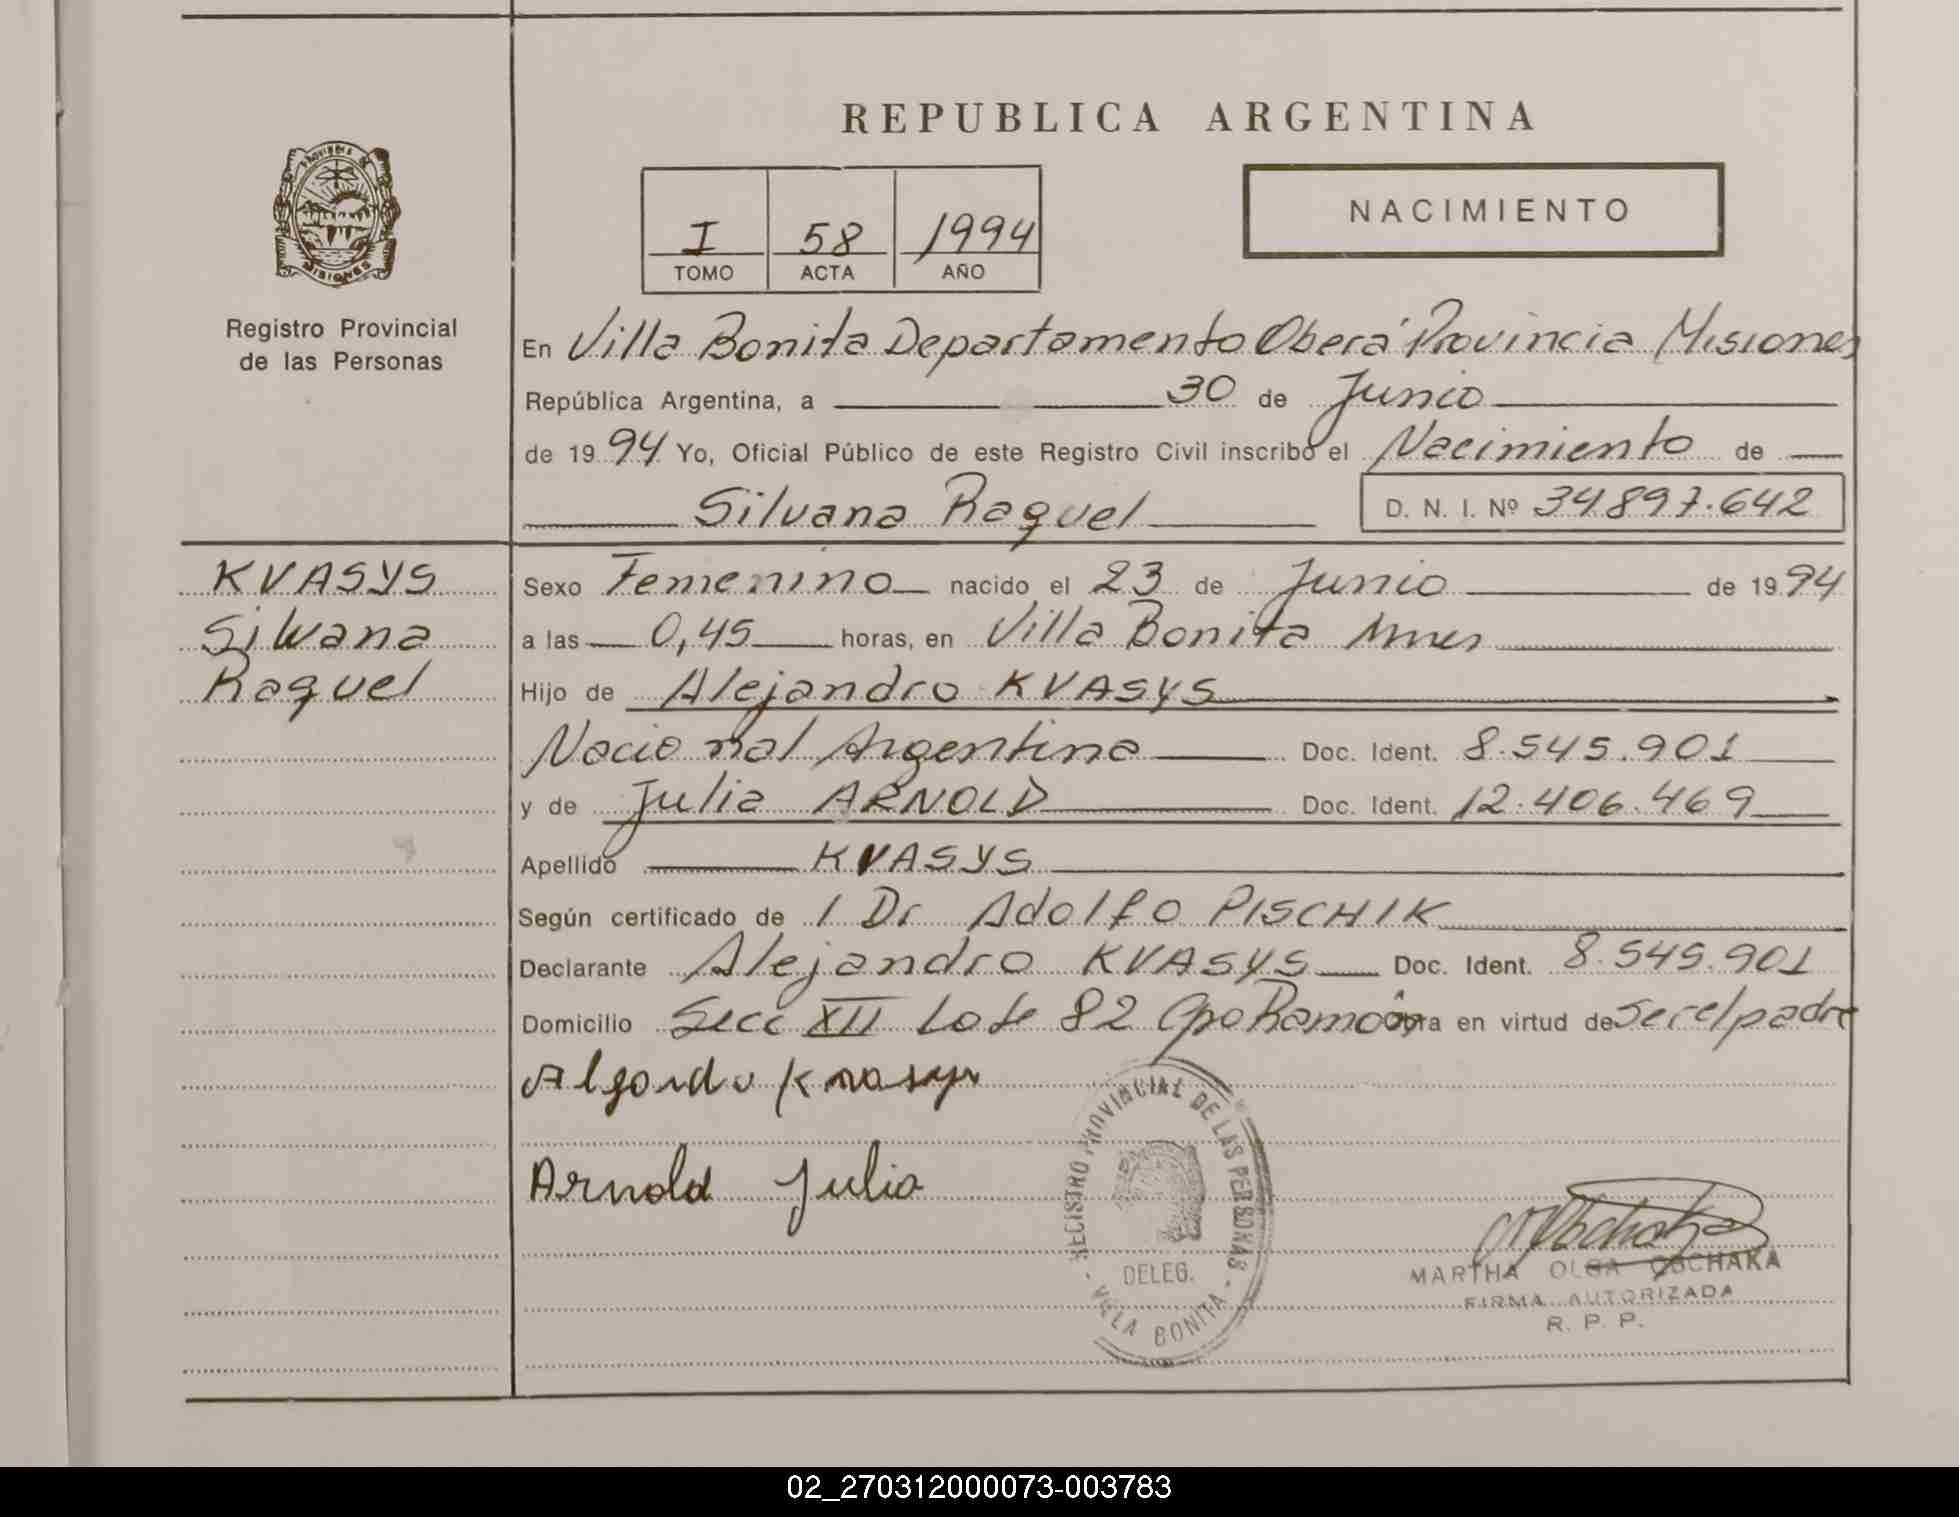 REPUBLICA ARGENTINA
PROVINCIA DE
MISIONES
Registro Provincial
de las Personas
I 58 1994
TOMO ACTA AÑO
NACIMIENTO
En Villa Bonita Departamento Oberá Provincia Misiones
República Argentina, a 30 de Junio
de 1994 Yo, Oficial Público de este Registro Civil inscribo el Nacimiento de
Silvana Raquel D. N. I. Nº 34897.642
KVASYS
Silvana
Raquel
Sexo Femenino nacido el 23 de Junio de 1994
a las 0,45 horas, en Villa Bonita Mnes
Hijo de Alejandro KVASYS
Nacional Argentina Doc. Ident. 8.545.901
y de Julia ARNOLD Doc. Ident. 12.406.469
Apellido KVASYS
Según certificado de l Dr Adolfo PISCHIK
Declarante Alejandro KVASYS Doc. Ident. 8.545.901
Domicilio Secc XII Lote 82 Gpo Ramón en virtud de ser el padre
Arnold Julia
REGISTRO PROVINCIAL DE LAS PERSONAS
DELEG.
- VILLA BONITA -
MARTHA OLGA OBCHAKA
FIRMA AUTORIZADA
R. P. P.
02_270312000073-003783